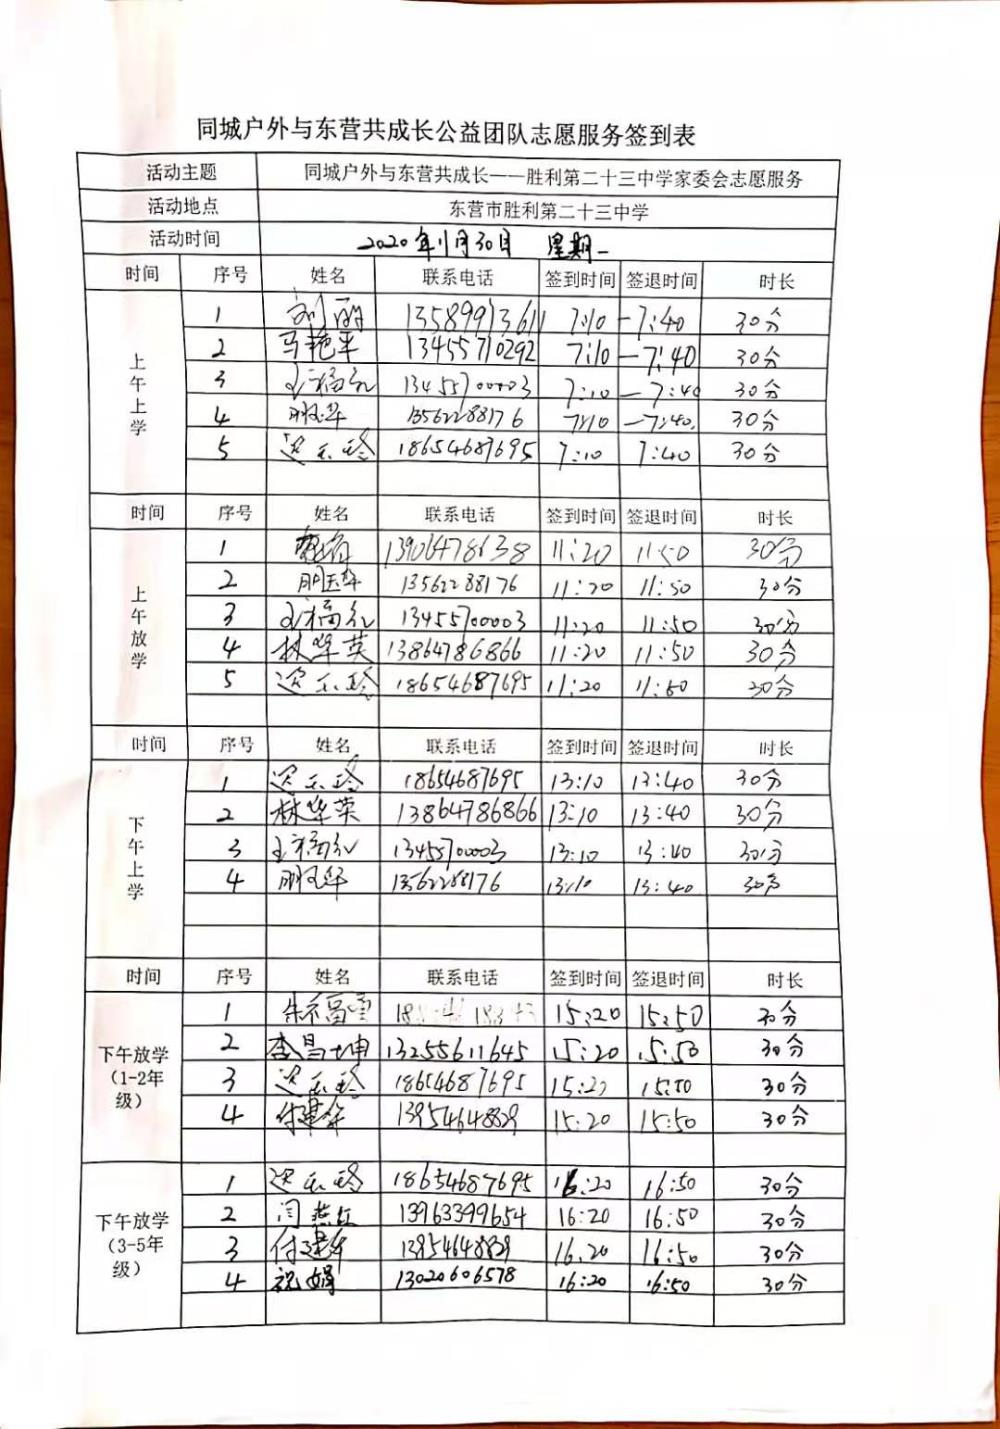 同城户外与东营共成长公益团队志愿服务签到表
活动主题 同城户外与东营共成长——胜利第二十三中学家委会志愿服务
活动地点 东营市胜利第二十三中学
活动时间 2020年11月30日 星期一
时间 序号 姓名 联系电话 签到时间 签退时间 时长
上午上学
1 刘丽 13589913611 7:10 — 7:40 30分
2 马艳平 13455710292 7:10 — 7:40 30分
3 王福红 13455700003 7:10 — 7:40 30分
4 13562288176 7:10 — 7:40. 30分
5 18654687695 7:10 7:40 30分
时间 序号 姓名 联系电话 签到时间 签退时间 时长
上午放学
1 13906478638 11:20 11:50 30分
2 13562288176 11:20 11:50 30分
3 王福红 13455700003 11:20 11:50 30分
4 林华英 13864786866 11:20 11:50 30分
5 18654687695 11:20 11:50 30分
时间 序号 姓名 联系电话 签到时间 签退时间 时长
下午上学
1 18654687695 13:10 13:40 30分
2 林华英 13864786866 13:10 13:40 30分
3 王福红 13455700003 13:10 13:40 30分
4 13562288176 13:10 13:40 30分
时间 序号 姓名 联系电话 签到时间 签退时间 时长
下午放学(1-2年级)
1 15:20 15:50 30分
2 李昌坤 13255611645 15:20 15:50 30分
3 18654687695 15:20 15:50 30分
4 付建华 13954648829 15:20 15:50 30分
下午放学(3-5年级)
1 18654687695 16:20 16:50 30分
2 闫燕红 13963399654 16:20 16:50 30分
3 付建华 13954648829 16.20 16:50 30分
4 祝娟 13020606578 16:20 16:50 30分